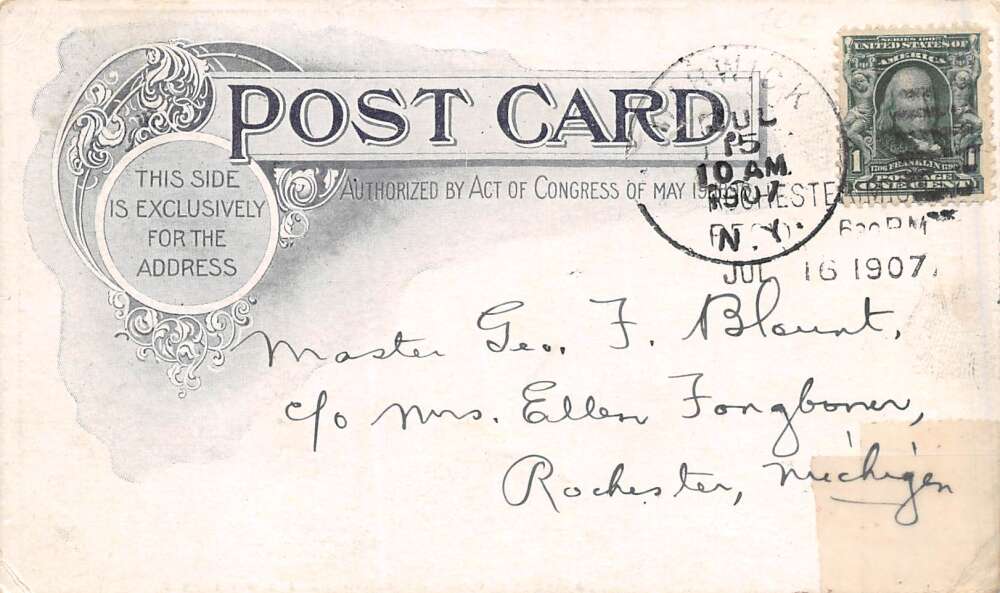 POST CARD.
AUTHORIZED BY ACT OF CONGRESS OF MAY 19
THIS SIDE
IS EXCLUSIVELY
FOR THE
ADDRESS
JUL
15
10 AM
1907
N.Y.
ROCHESTER, MICH.
REC'D. PM
JUL 16 1907
SERIES 1902
UNITED STATES OF
AMERICA
1 FRANKLIN 1
POSTAGE
ONE CENT
Master Geo. F. Blount,
c/o Mrs. Ellen Fongboner,
Rochester, Michigan